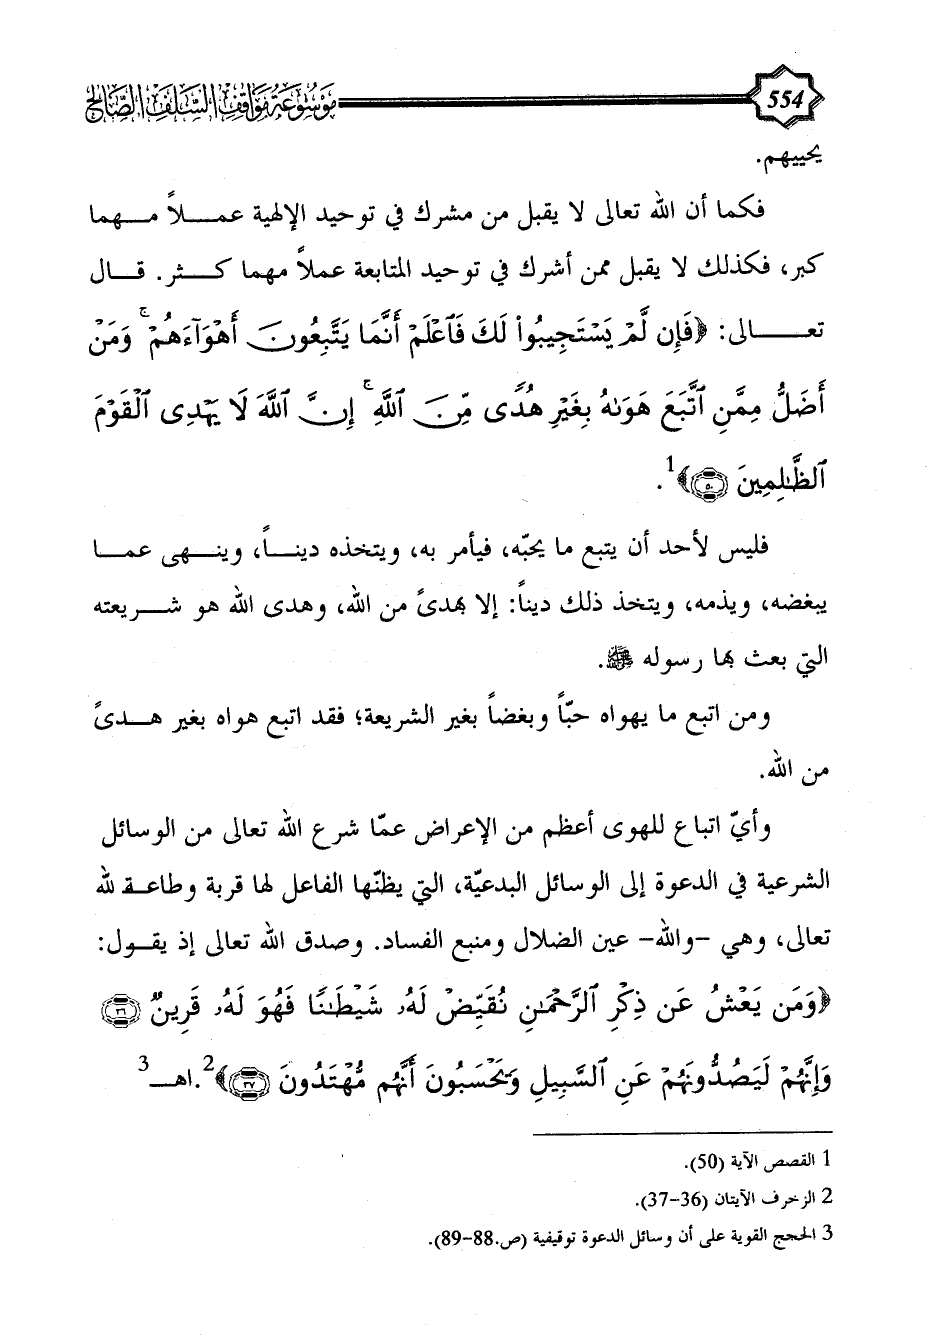 554
موسوعة مواقف السلف الصالح
يحييهم.
فكما أن الله تعالى لا يقبل من مشرك في توحيد الإلهية عمـــلاً مــهما
كبر، فكذلك لا يقبل ممن أشرك في توحيد المتابعة عملاً مهما كـــثر. قــال
تعـــالى: ﴿فَإِن لَّمْ يَسْتَجِيبُوا۟ لَكَ فَٱعْلَمْ أَنَّمَا يَتَّبِعُونَ أَهْوَآءَهُمْ ۚ وَمَنْ
أَضَلُّ مِمَّنِ ٱتَّبَعَ هَوَىٰهُ بِغَيْرِ هُدًى مِّنَ ٱللَّهِ ۚ إِنَّ ٱللَّهَ لَا يَهْدِى ٱلْقَوْمَ
ٱلظَّـٰلِمِينَ ٥٠﴾1.
فليس لأحد أن يتبع ما يحبّه، فيأمر به، ويتخذه دينــاً، وينــهى عمــا
يبغضه، ويذمه، ويتخذ ذلك ديناً: إلا بهدىً من الله، وهدى الله هو شــريعته
التي بعث بها رسوله ﷺ.
ومن اتبع ما يهواه حبّاً وبغضاً بغير الشريعة؛ فقد اتبع هواه بغير هــدىً
من الله.
وأيّ اتباع للهوى أعظم من الإعراض عمّا شرع الله تعالى من الوسائل
الشرعية في الدعوة إلى الوسائل البدعيّة، التي يظنّها الفاعل لها قربة وطاعـة لله
تعالى، وهي -والله- عين الضلال ومنبع الفساد. وصدق الله تعالى إذ يقــول:
﴿وَمَن يَعْشُ عَن ذِكْرِ ٱلرَّحْمَـٰنِ نُقَيِّضْ لَهُۥ شَيْطَـٰنًا فَهُوَ لَهُۥ قَرِينٌ ٣٦
وَإِنَّهُمْ لَيَصُدُّونَهُمْ عَنِ ٱلسَّبِيلِ وَيَحْسَبُونَ أَنَّهُم مُّهْتَدُونَ ٣٧﴾2.اهــ3
1 القصص الآية (50).
2 الزخرف الآيتان (36-37).
3 الحجج القوية على أن وسائل الدعوة توقيفية (ص.88-89).